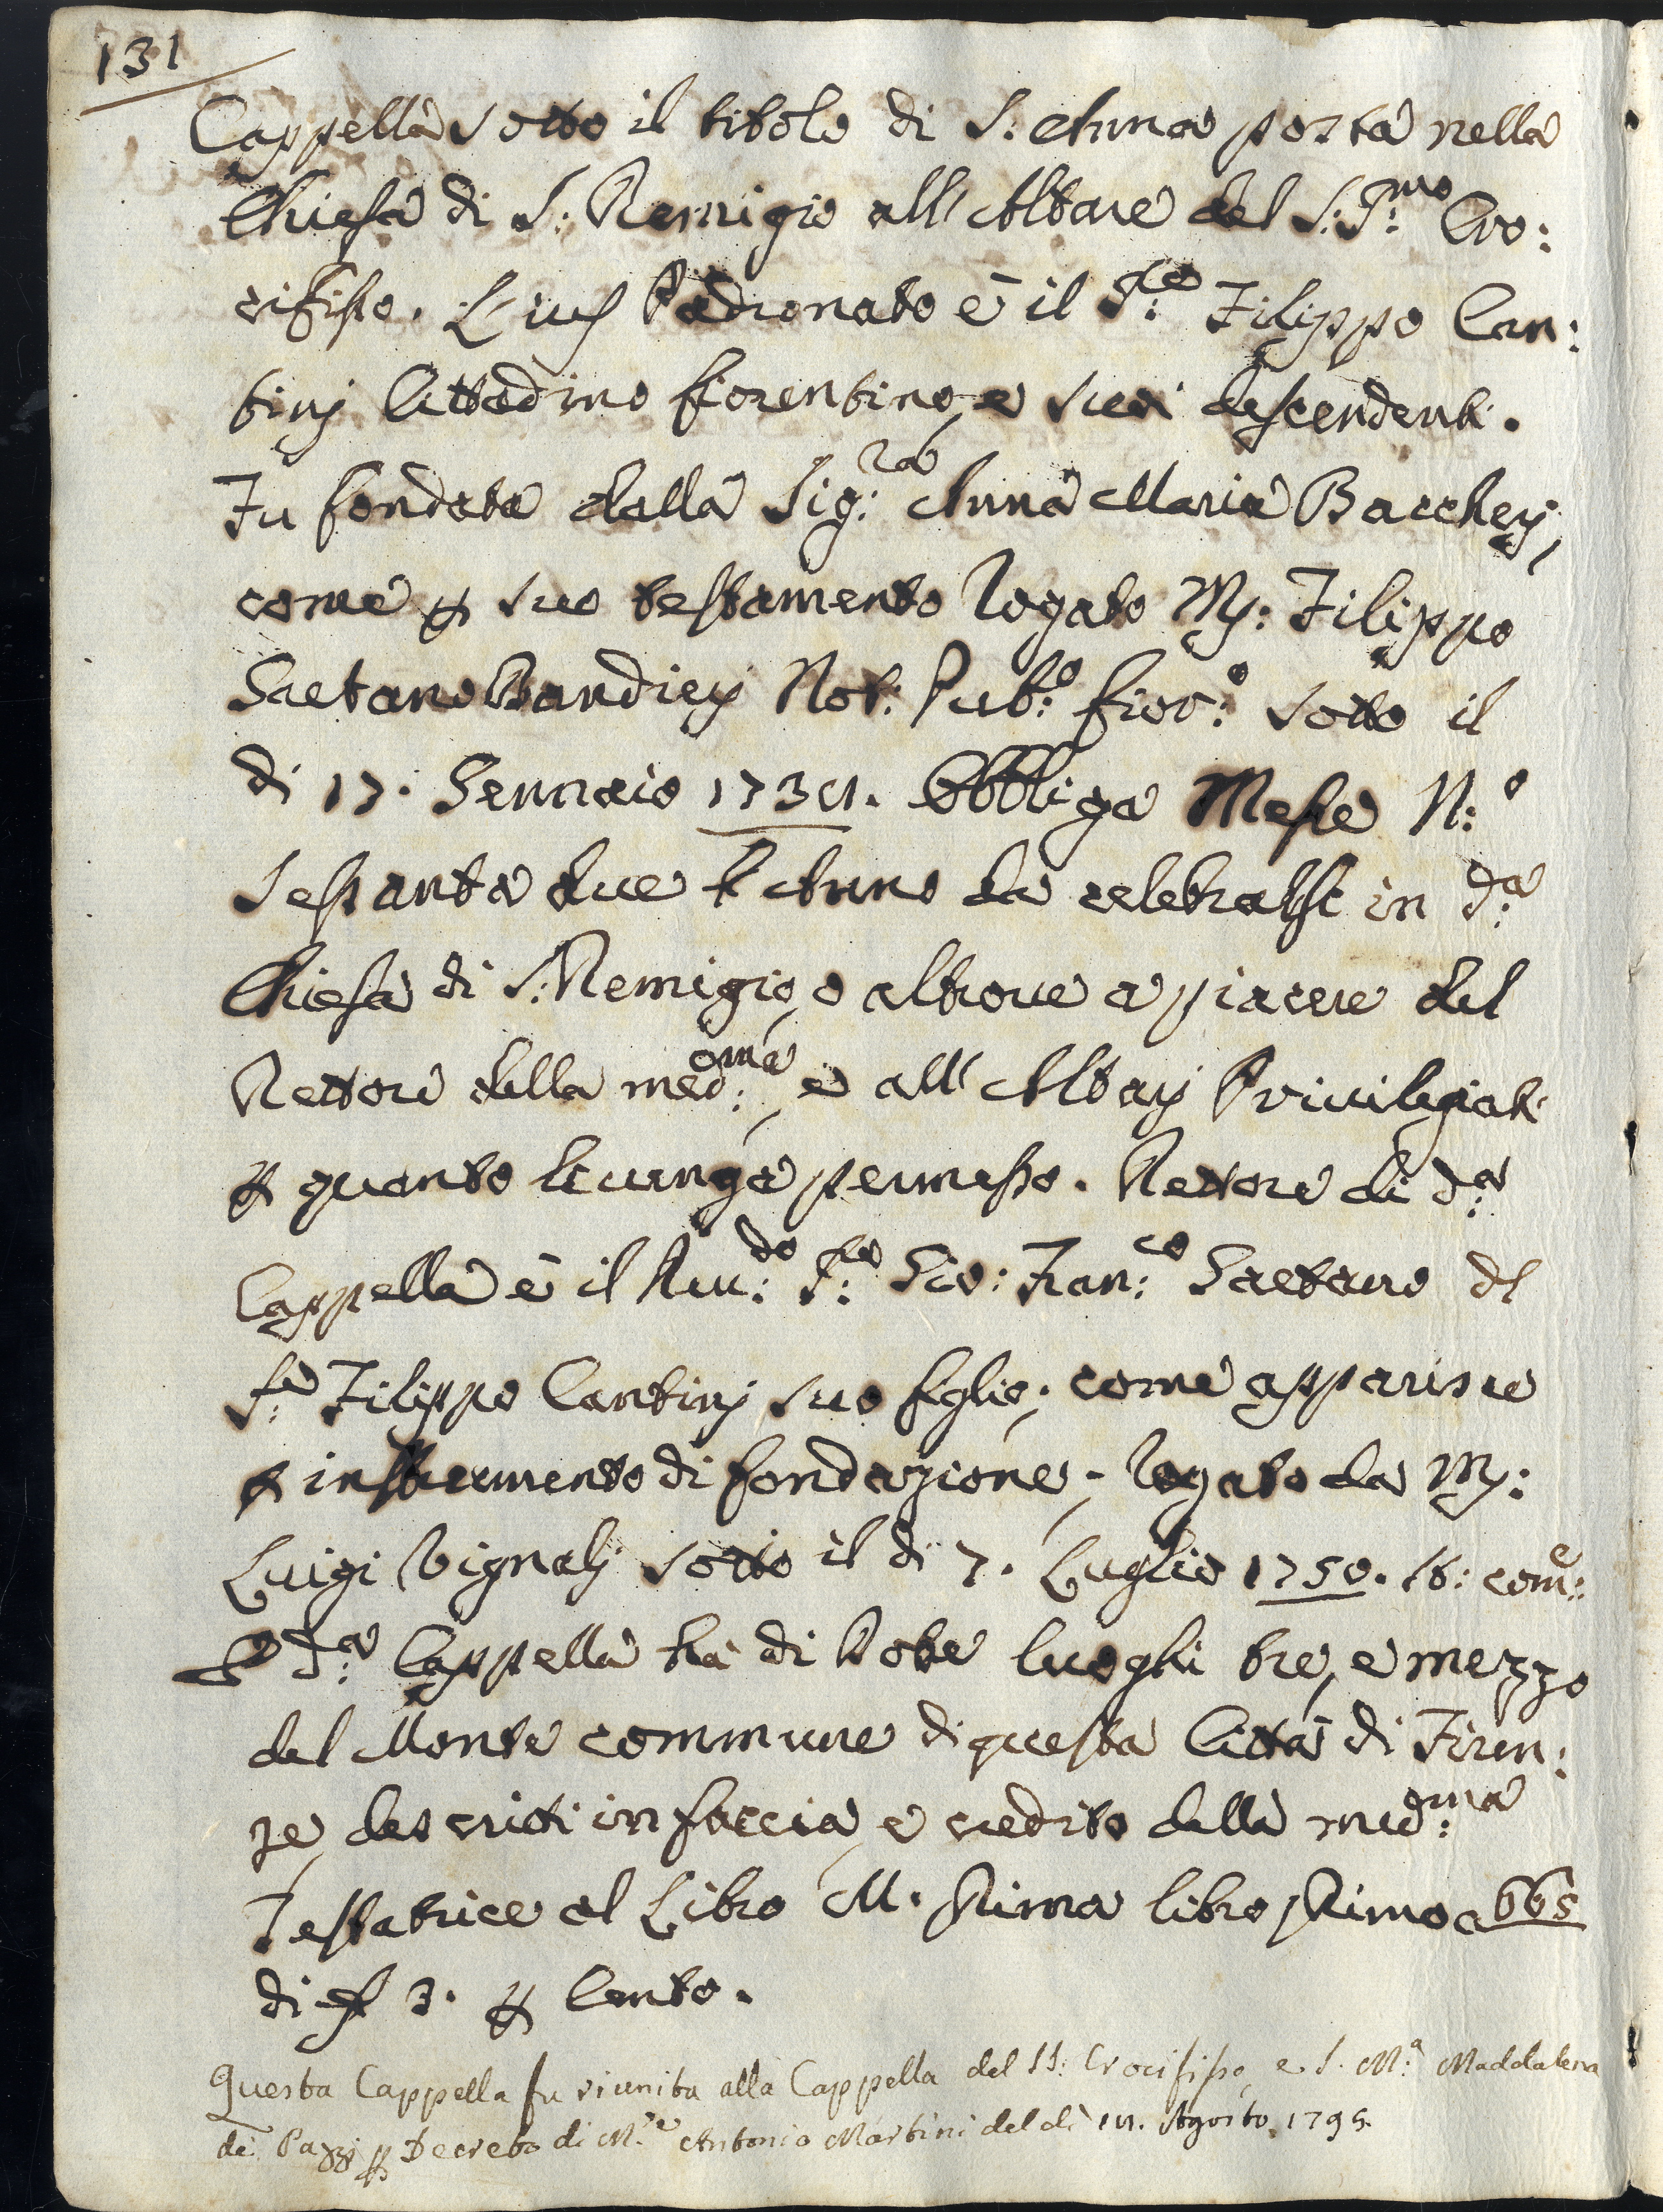 131
Cappella sotto il titolo di S: Anna posta nella
Chiesa di S: Remigio all'Altare del S:S:mo Cro:
cifisso. L'ius Padronato è il S:re Filippo Can:
tinj Cittadino fiorentino, e suoi descendenti.
Fu fondata dalla Sig:ra Anna Maria Bacchej,
come p suo testamento Rogato Ms: Filippo
Gaetano Bandierj Not: Pub:o fior:o sotto il
di 17. Gennaio Obbliga Messe N:o
Sessanta due l'Anno da celebrarsi in d:a
Chiesa di S: Remigio, o altrove a piacere del
Rettore della med:ema, e all'Altarj Privilegiati
p quanto li venga permesso. Rettore di d:a
Cappella è il Rev:do S:re Gio: Fran:co Gaetano del
S:re Filippo Cantinj suo figlio, come apparisce
p instrumento di fondazione, rogato da Ms:
Luigi Vignalj sotto il di 7. Luglio 1750. come:
d:a Cappella ha di Dote luoghi tre, e mezzo
del Monte commune di questa Città di Firen:
ze, descritti in faccia, e credito della med:ma
Testatrice al Libro M. Prima libro Primo a 665
di 3. p Cento.
Questa Cappella fu riunita alla Cappella del SS: Crocifisso, e S. M:a Maddalena
de' Pazzj p Decreto di M:re Antonio Martini del dì Agosto 1795.